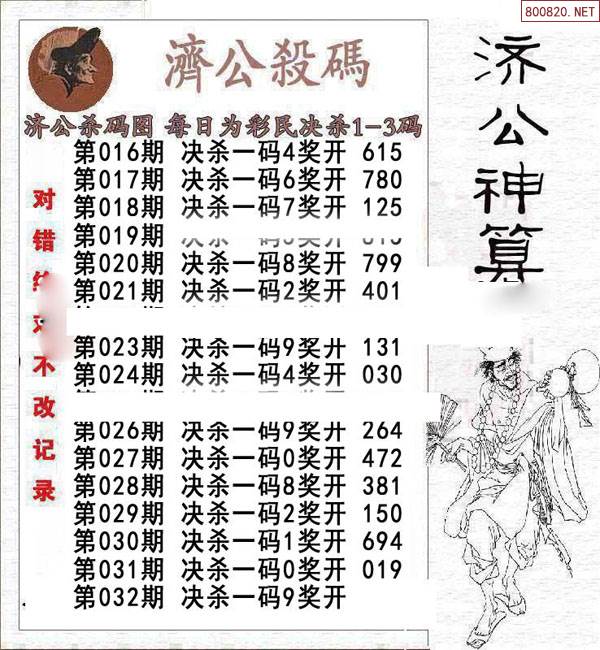 800820.NET
濟公殺碼
济公杀码图 每日为彩民决杀1-3码
第016期 决杀一码4奖开 615
第017期 决杀一码6奖开 780
第018期 决杀一码7奖开 125
第019期
第020期 决杀一码8奖开 799
第021期 决杀一码2奖开 401
第023期 决杀一码9奖开 131
第024期 决杀一码4奖开 030
第026期 决杀一码9奖开 264
第027期 决杀一码0奖开 472
第028期 决杀一码8奖开 381
第029期 决杀一码2奖开 150
第030期 决杀一码1奖开 694
第031期 决杀一码0奖开 019
第032期 决杀一码9奖开
对错 不改记录
济公神算